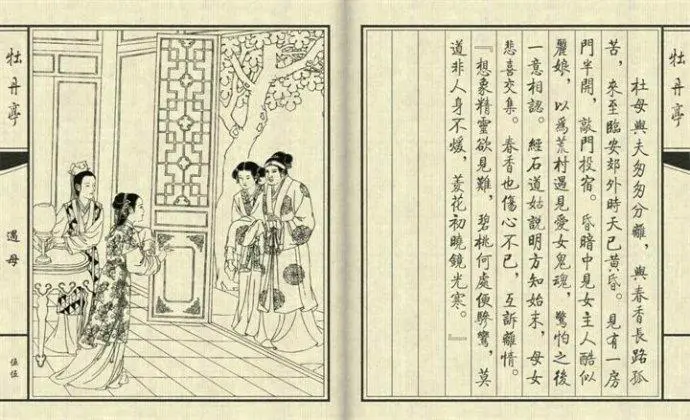 牡丹亭
杜母與夫匆匆分離，與春香長路孤
苦，來至臨安郊外時天已黃昏。見有一房
門半開，敲門投宿。昏暗中見女主人酷似
麗娘，以爲荒村遇見愛女鬼魂，驚怕之後
一意相認。經石道姑說明方知始末，母女
悲喜交集。春香也傷心不已，互訴離情。
『想象精靈欲見難，碧桃何處便驂鸞，莫
道非人身不煖，菱花初曉鏡光寒。』
牡丹亭
遇母
伍伍